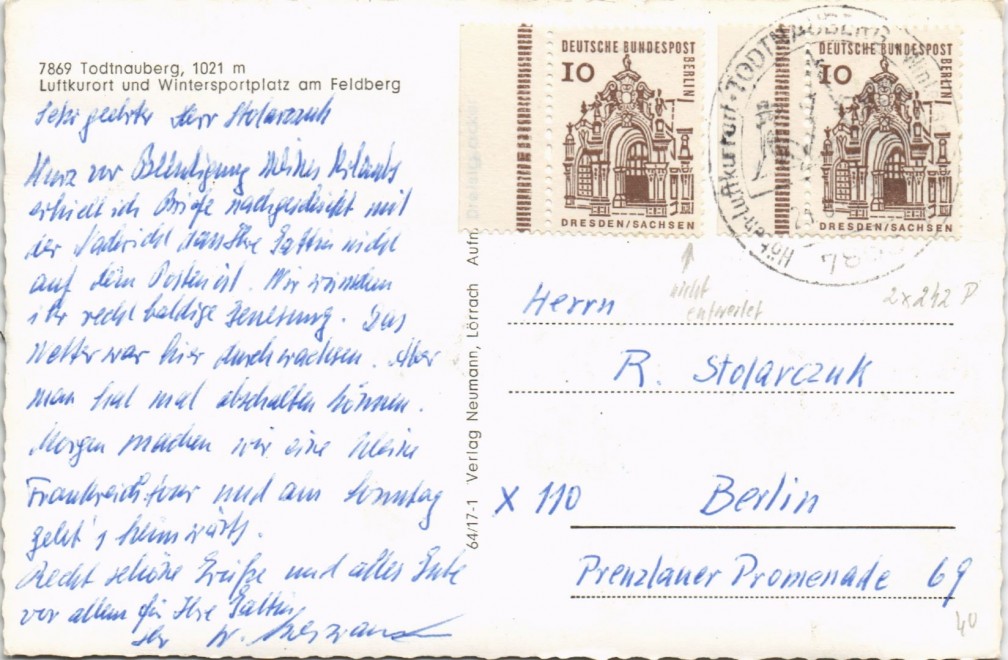 7869 Todtnauberg, 1021 m
Luftkurort und Wintersportplatz am Feldberg
Sehr geehrter Herr Stolarczuk
Kurz vor Beendigung meines Urlaubs
erhielt ich Briefe nachgeschickt mit
der Nachricht dass Ihre Gattin nicht
auf dem Posten ist. Wir wünschen
ihr recht baldige Genesung. Das
Wetter war hier durchwachsen. Aber
man hat mal abschalten können.
Morgen machen wir eine kleine
Frankreichtour und am Sonntag
geht's heimwärts.
Recht schöne Grüße und alles Gute
vor allem für Ihre Gattin
Ihr W.
64/17-1 Verlag Neumann, Lörrach Aufn.
DEUTSCHE BUNDESPOST BERLIN
10
DRESDEN/SACHSEN
DEUTSCHE BUNDESPOST BERLIN
10
DRESDEN/SACHSEN
TODTNAUBERG
Höhen-Luftkurort
nicht
entwertet
2x242 P
Herrn
R. Stolarczuk
X 110 Berlin
Prenzlauer Promenade 69
40